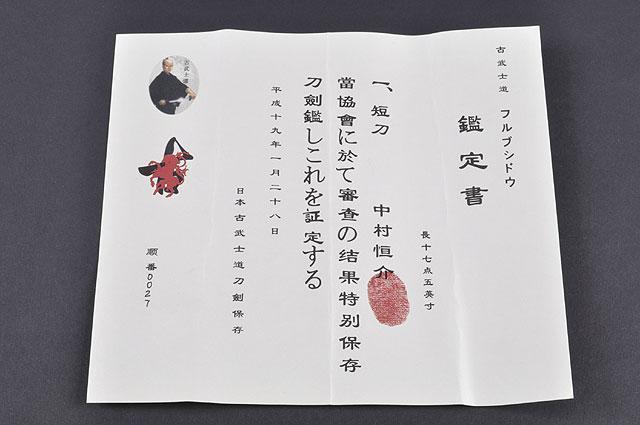 古武士道 フルブシドウ
鑑定書
長十七点五英寸
一、短刀 中村恒介
當協會に於て審査の结果特别保存
刀劍鑑しこれを証定する
平成十九年一月二十八日
日本古武士道刀劍保存
古武士道
順番0027